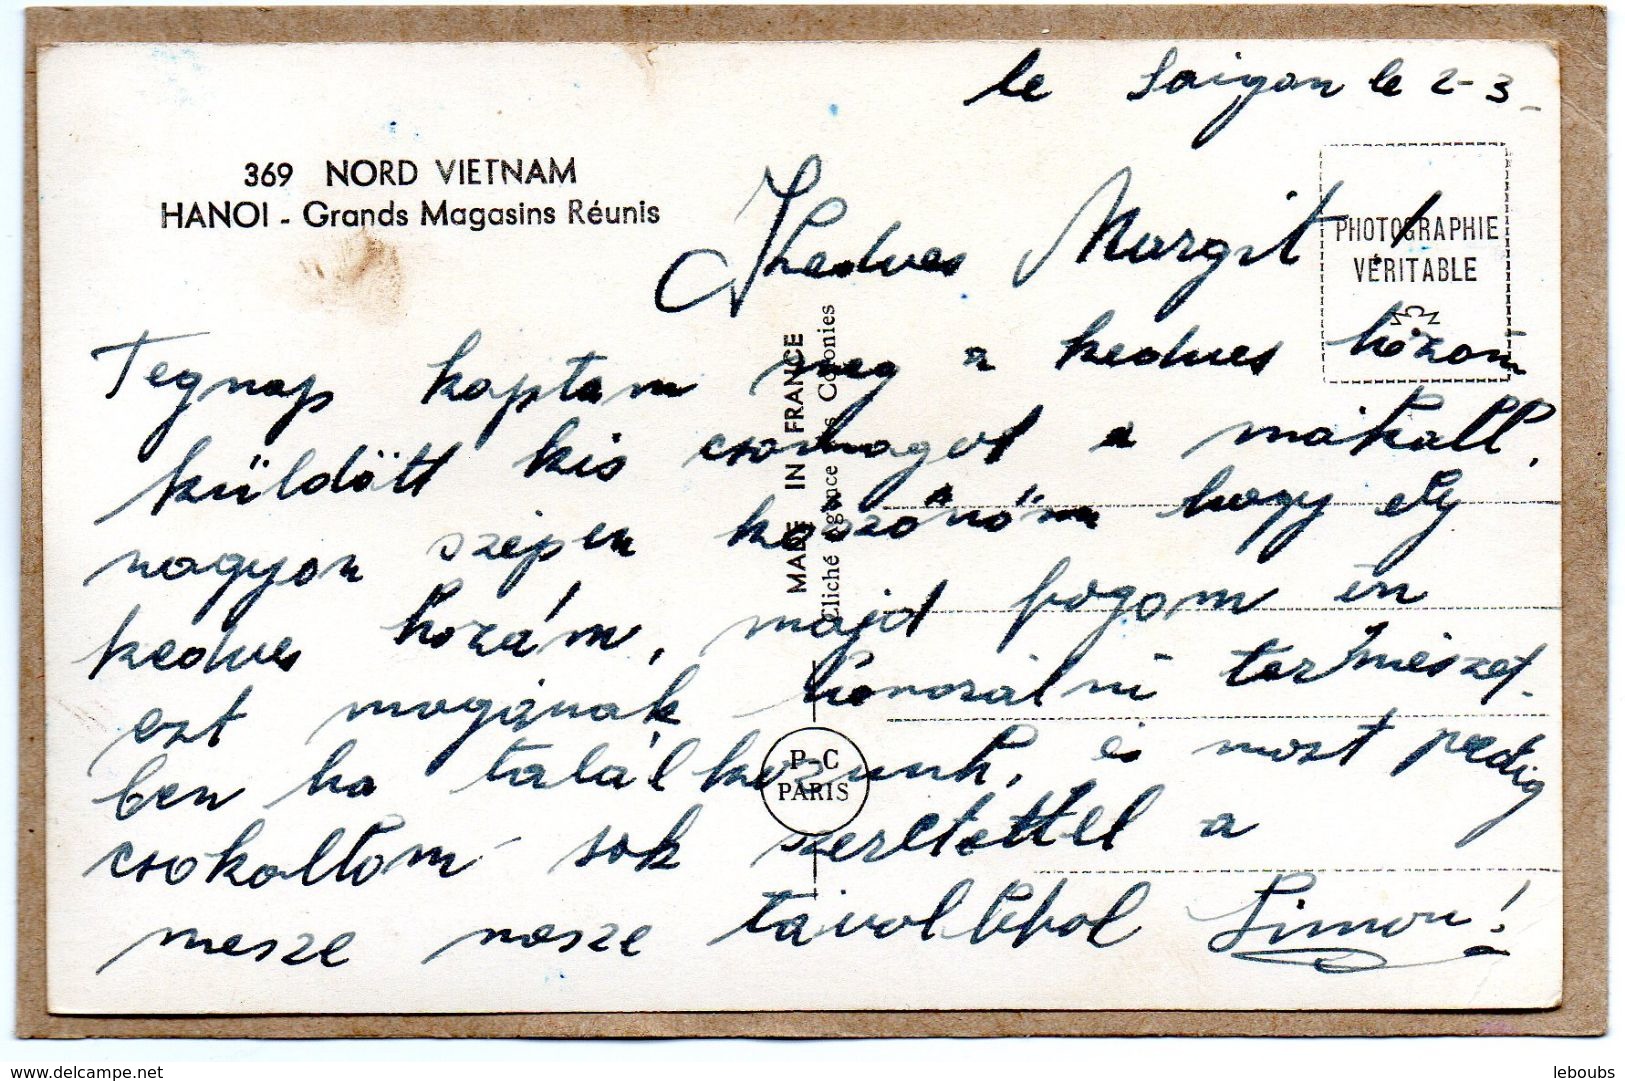 le Saigon le 2-3-
369 NORD VIETNAM
HANOI - Grands Magasins Réunis
PHOTOGRAPHIE
VÉRITABLE
Kedves Margit!
MADE IN FRANCE
Cliché Agence des Colonies
Tegnap kaptam meg a kedves
küldött kis csomagot a
nagyon szépen köszönöm hogy ily
kedves hozám, majd fogom én
ezt magának honorálni természet.
ben ha találkozunk, és most pedig
P-C
PARIS
csokoltom sok szeretettel a
mesze mesze Simon!
delcampe.net
leboubs